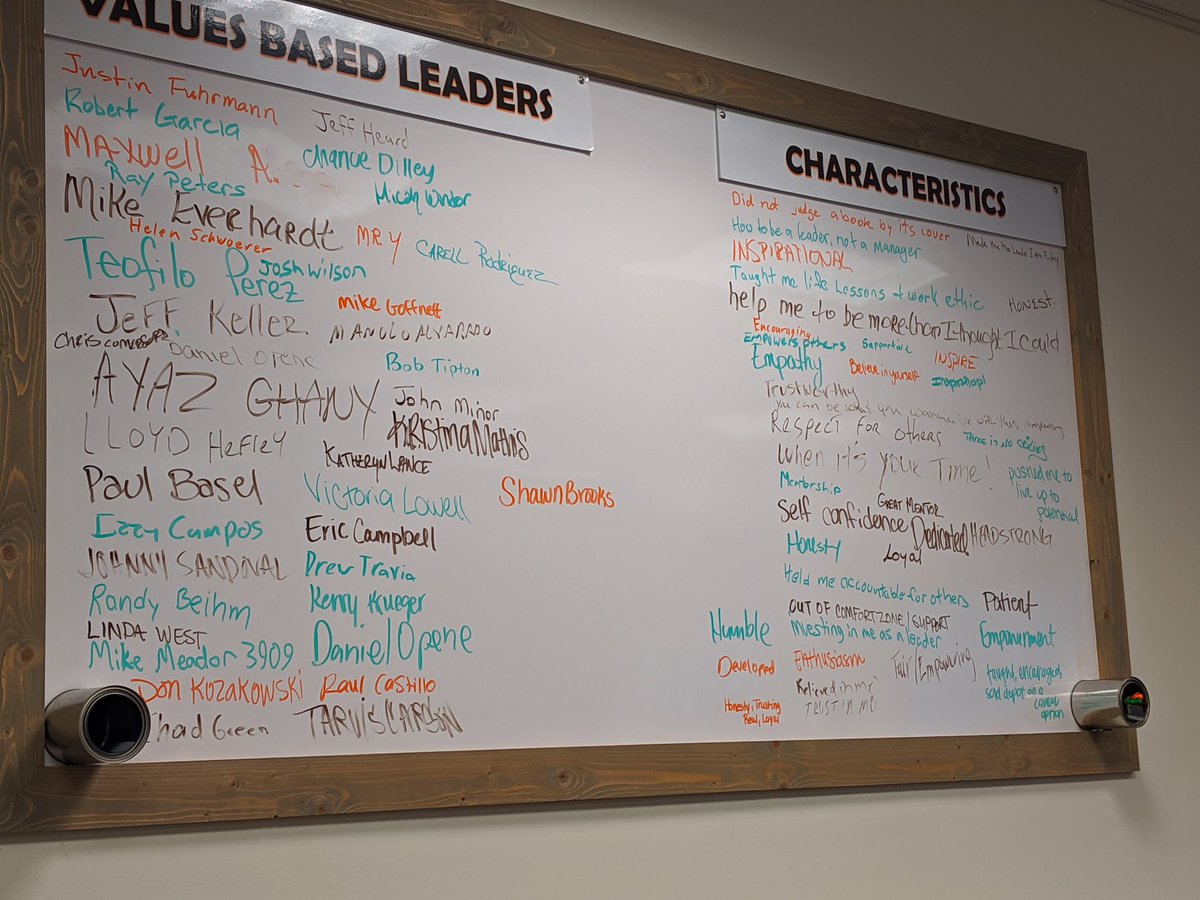 VALUES BASED LEADERS
Justin Fuhrmann
Jeff Heard
Robert Garcia
MAXWELL A.
Chance Dilley
Ray Peters
Micah
Mike Everhardt
Helen Schwoerer
MR. Y
CARELL Rodriguez
Teofilo Perez
Josh Wilson
Mike Goffnett
JEFF Keller
MANOLO ALVARADO
Chris
Daniel Opene
Bob Tipton
AYAZ GHANY
John Minor
KRistina Mathis
LLOYD Hefley
KATHERYN LANCE
Paul Basel
Victoria Lowell
Shawn Brooks
Izzy Campos
Eric Campbell
JOHNNY SANDOVAL
Drew Travia
Randy Beihm
Kerry Krueger
LINDA WEST
Mike Meador 3909
Daniel Opene
Don Kozakowski
Raul Castillo
had Green
TARVIS CARSON
CHARACTERISTICS
Did not judge a book by its cover
Made me the Leader I am Today
How to be a leader, not a manager
INSPIRATIONAL
Taught me life Lessons + work ethic
HONEST
help me to be more than I thought I could
Encouraging
Empowers others
Supportive
INSPIRE
Empathy
Believe in yourself
Inspirational
Trustworthy
You can be what you wanna be with this company
Respect FOR others
There is no ceiling
When it's your Time!
pushed me to
live up to
potential
Mentorship
GREAT MENTOR
Self confidence
Dedicated
HEADSTRONG
Honesty
Loyal
Held me accountable for others
Patient
OUT OF COMFORT ZONE / SUPPORT
Humble
Investing in me as a leader
Empowerment
Developed
Enthusiasm
Fair/Empowering
taught, encouraged,
sold depot as a
career
option
Believed in me
TRUST IN ME
Honesty, Trusting
Real, Loyal